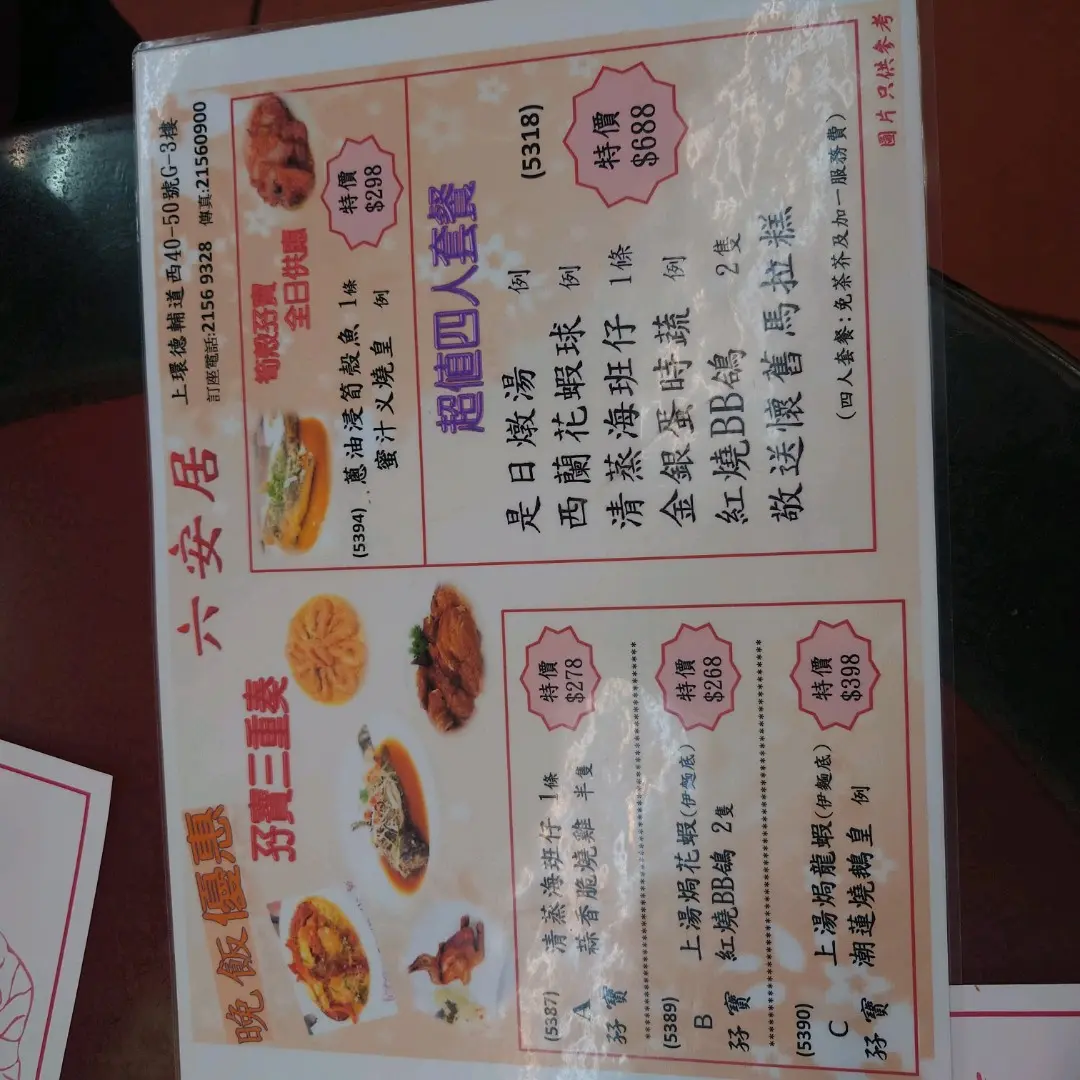 六安居
上環德輔道西40-50號G-3樓
訂座電話:2156 9328 傳真:21560900
晚飯優惠
孖寶三重奏
(5387) 清蒸海班仔 1條
A 蒜香脆燒雞 半隻
孖寶
特價
$278
(5389) 上湯焗花蝦(伊麵底)
B 紅燒BB鴿 2隻
孖寶
特價
$268
(5390) 上湯焗龍蝦(伊麵底)
C 潮蓮燒鵝皇 例
孖寶
特價
$398
筍殼孖寶
全日供應
(5394) 蔥油浸筍殼魚 1條
蜜汁义燒皇 例
特價
$298
超值四人套餐
(5318)
是日燉湯 例
西蘭花蝦球 例
清蒸海班仔 1條
金銀蛋時蔬 例
紅燒BB鴿 2隻
敬送懷舊馬拉糕
特價
$688
(四人套餐:免茶芥及加一服務費)
圖片只供參考